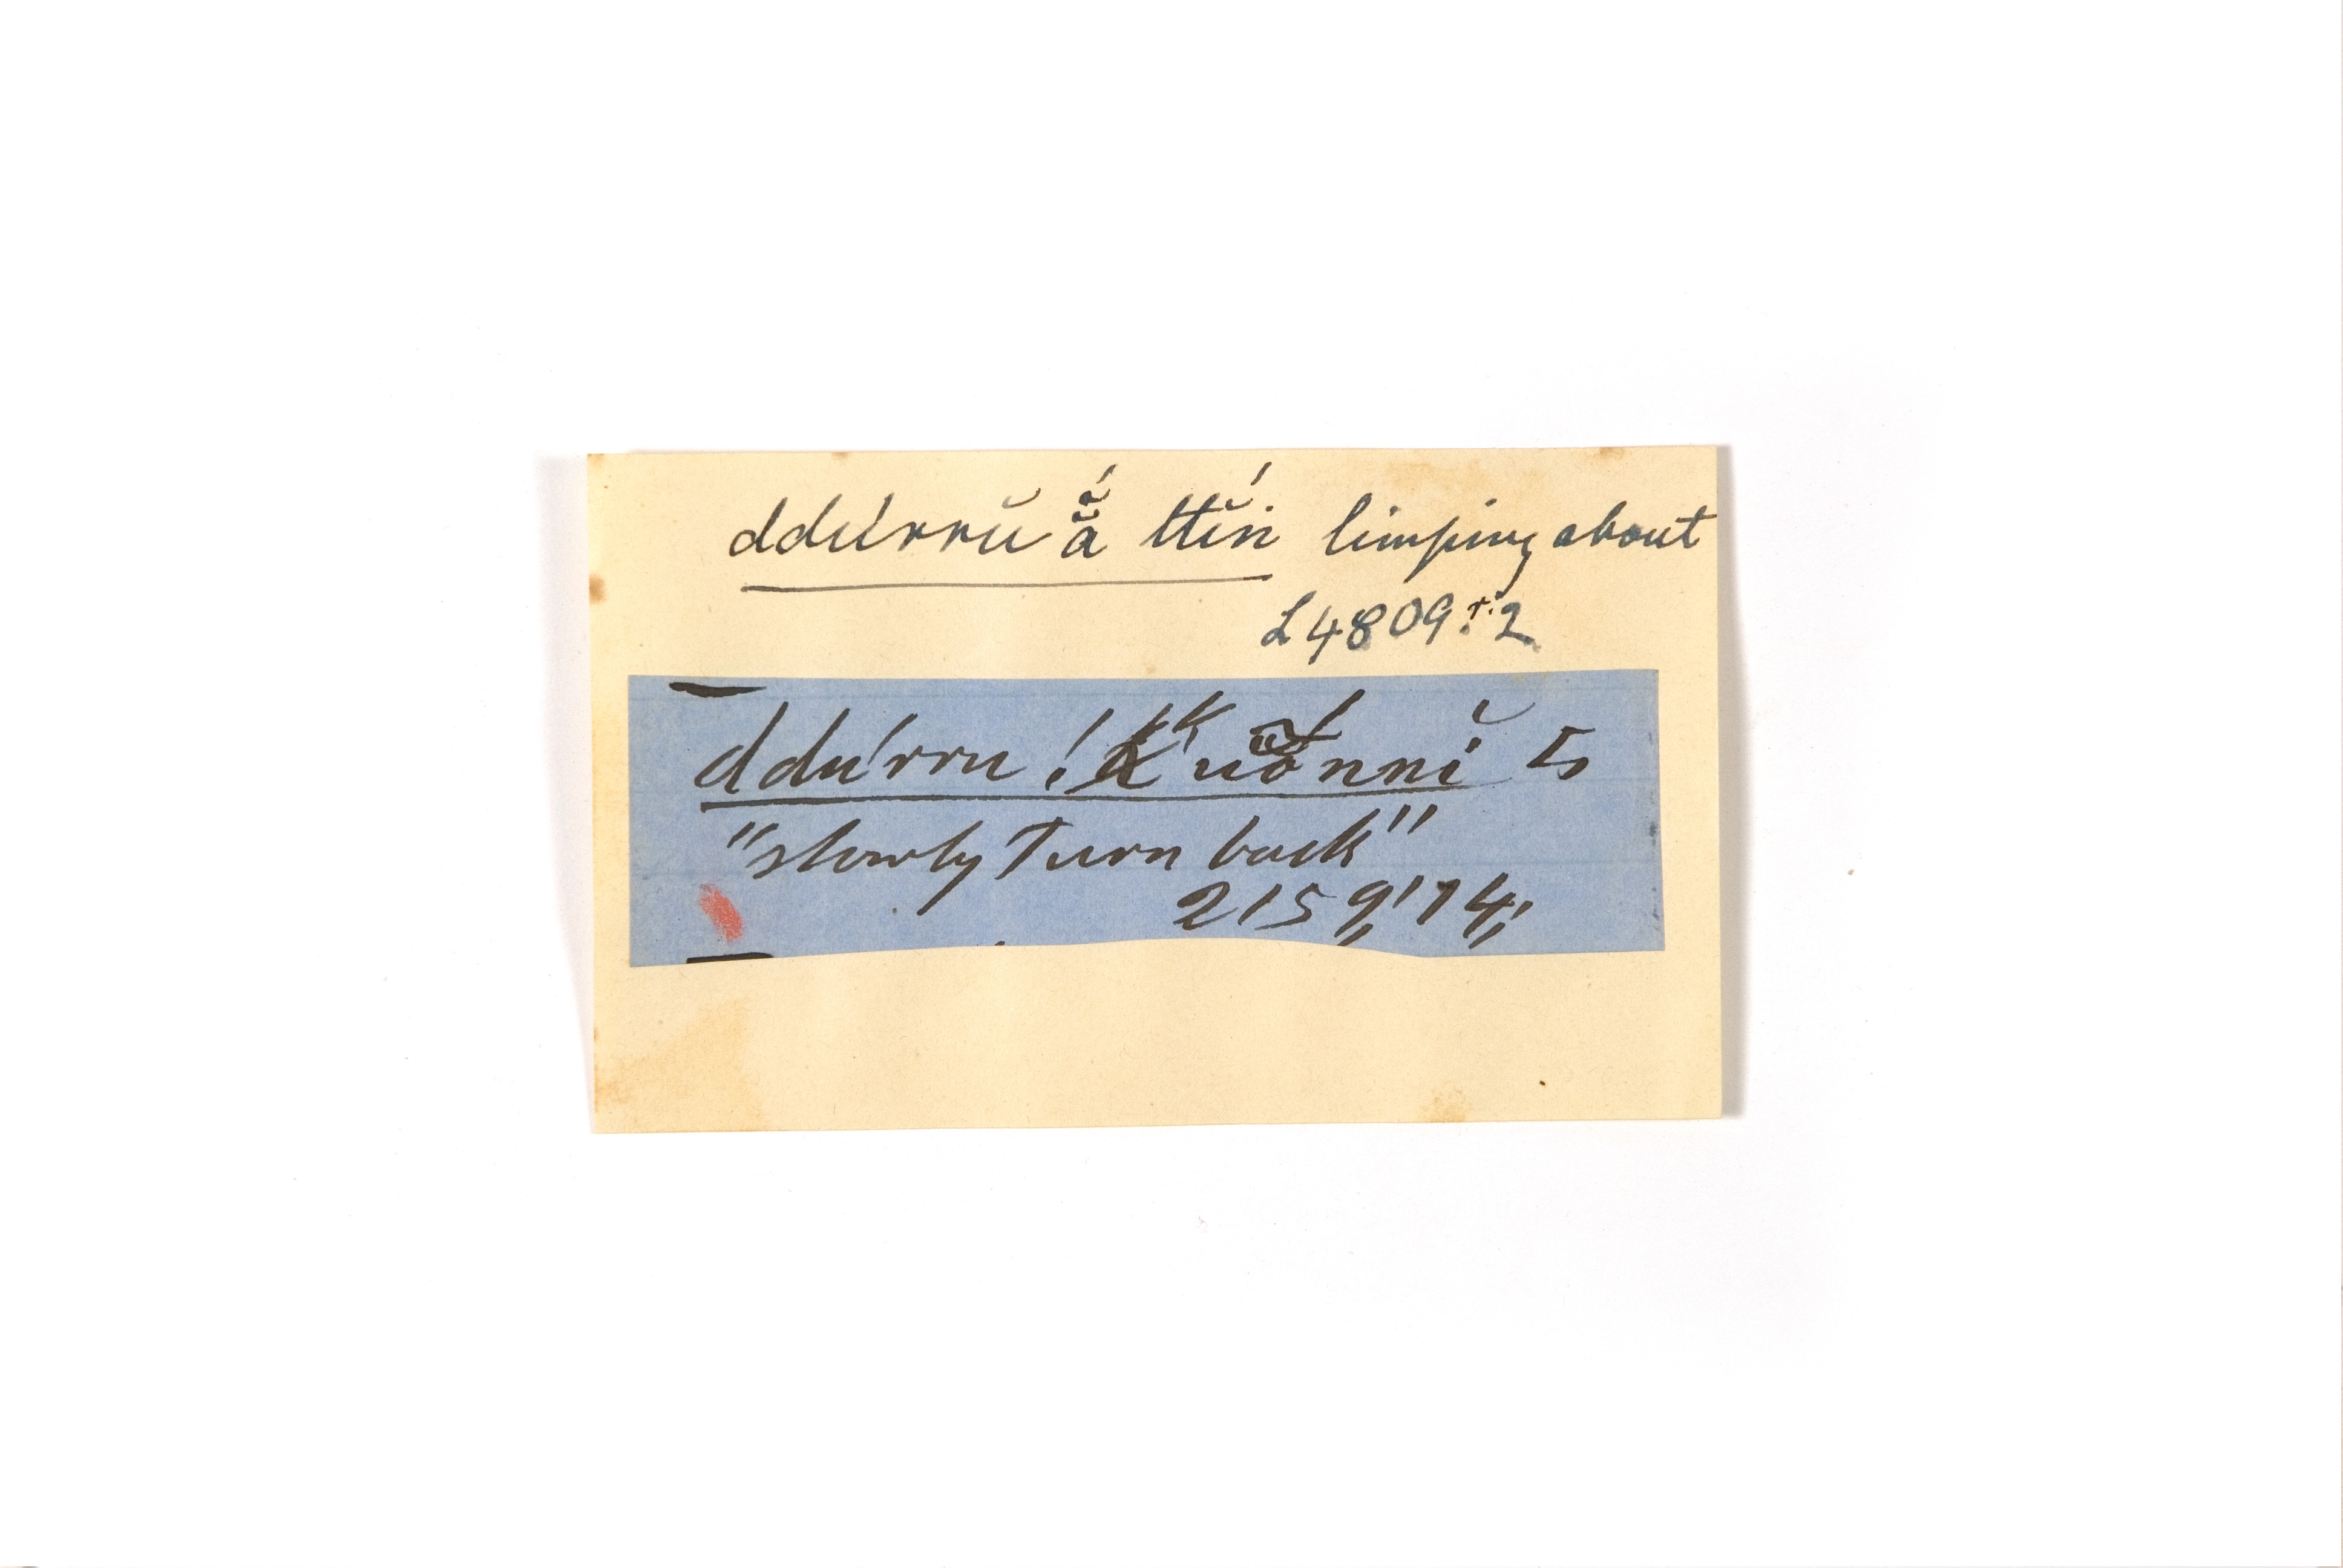 ddúrrŭ ắ ttĭ́n limping about
L4809.2
ddúrru !kuŏ́nnĭ to
"slowly turn back"
2159,'14,'